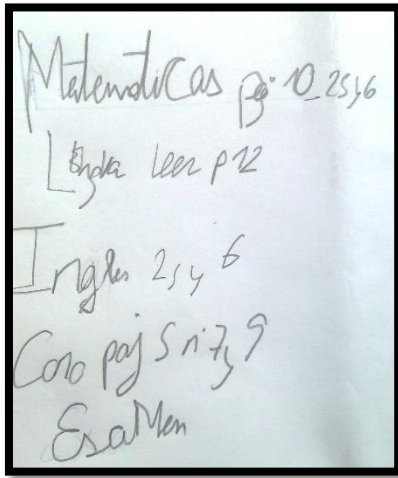 Matematicas pj 10_ 2 5 y 6
Lengua leer p 12
Ingles 2 5 y 6
Cono paj 5 n: 7 y 9
Esamen